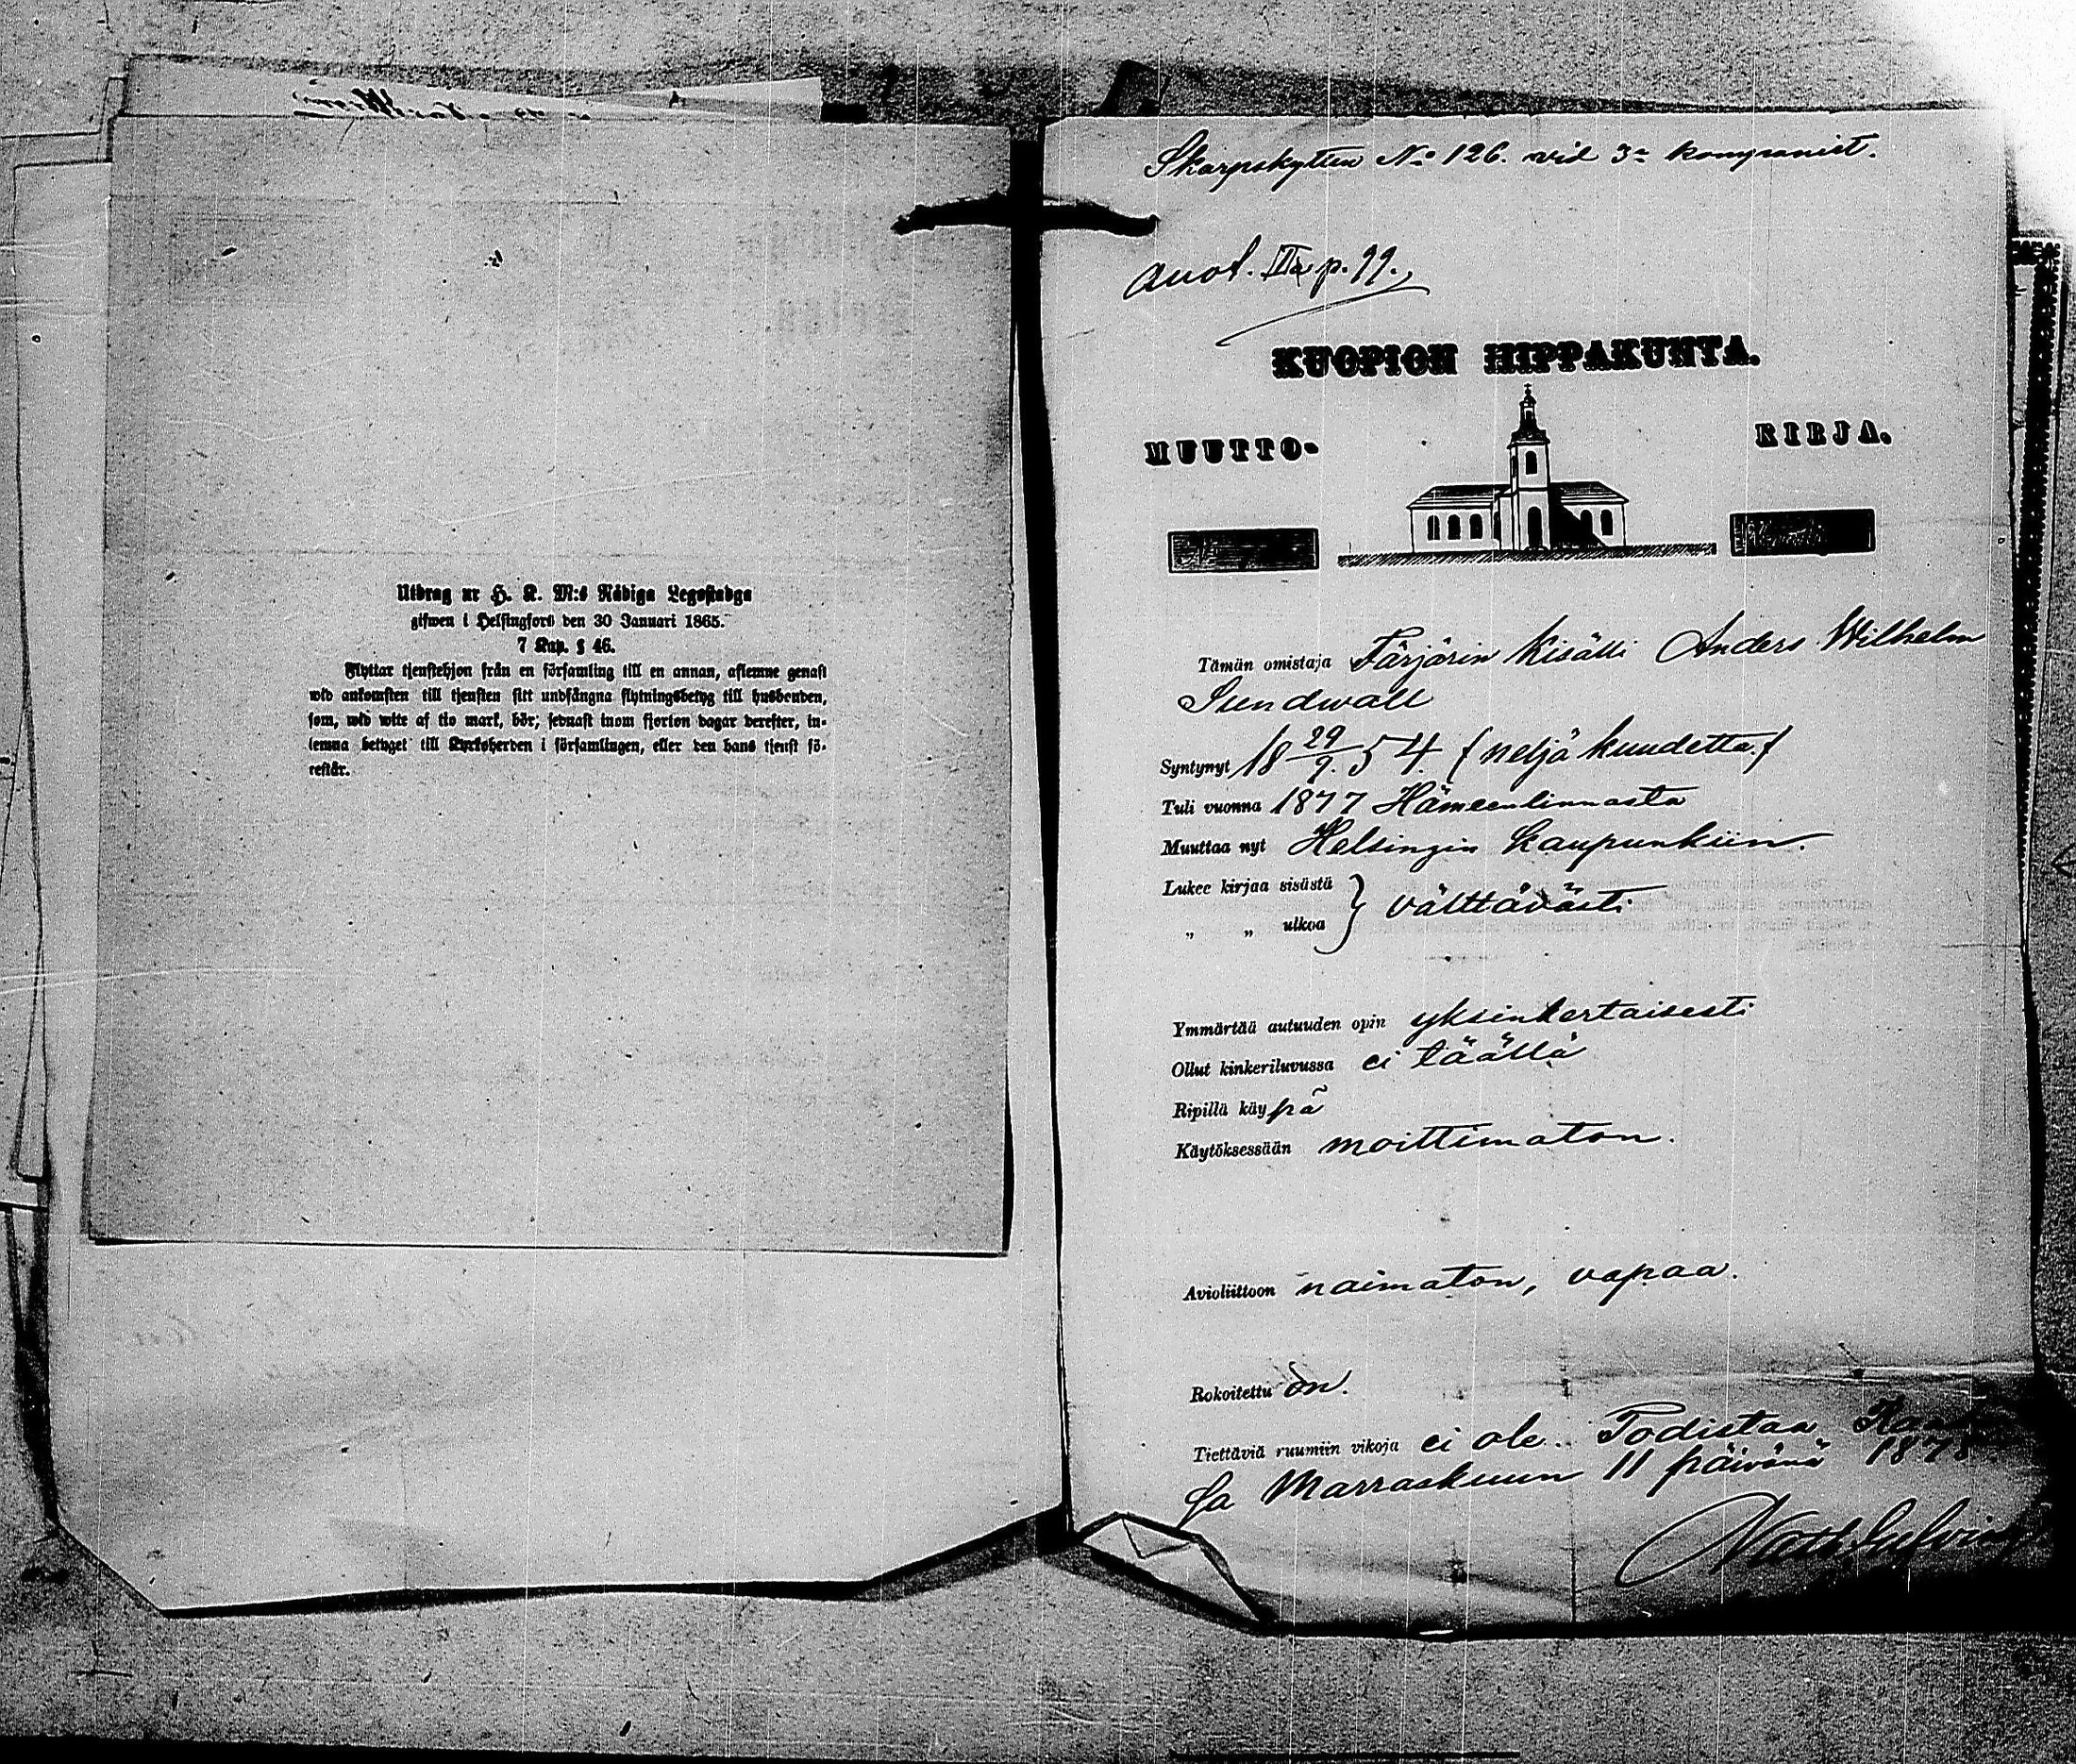 Utdrag ur H. K. M:s Nådiga Legostadga
gifwen i Helsingfors den 30 Januari 1865.
7 Kap. § 46.
Flyttar tjenstehjon från en församling till en annan, aflemne genast
wid ankomsten till tjensten sitt undfångna flytningsbetyg till husbonden,
som, wid wite af tio mark, bör, sednast inom fjorton dagar derefter, in-
lemna betyget till Kyrkoherden i församlingen, eller den hans tjenst fö-
restår.
Skarpskytten No 126. vid 3e kompaniet.
anot. p. 99.
KUOPION HIPPAKUNTA.
MUUTTO- KIRJA.
Tämän omistaja Färjärin Kisälli Anders Wilhelm
Sundwall
Syntynyt 18 29/9. 54. (neljä kuudetta)
Tuli vuonna 1877 Hämeenlinnasta
Muuttaa nyt Helsingin kaupunkiin.
Lukee kirjaa sisästä } välttävästi
„ „ ulkoa
Ymmärtää autuuden opin yksinkertaisesti
Ollut kinkeriluvussa ei täällä
Ripillä käypä
Käytöksessään moittimaton.
Avioliittoon naimaton, vapaa.
Rokoitettu on.
Tiettäviä ruumiin vikoja ei ole. Todistaa
sa Marraskuun 11 päivänä 1878